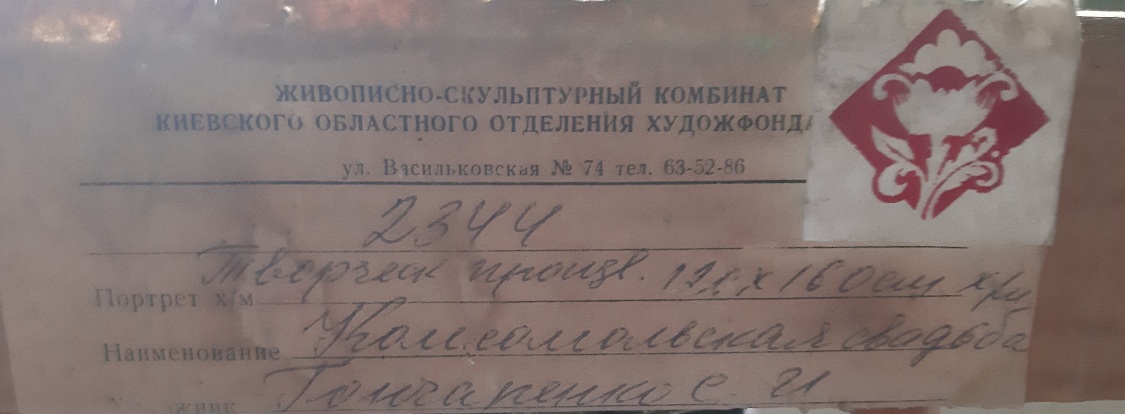 ЖИВОПИСНО-СКУЛЬПТУРНЫЙ КОМБИНАТ
КИЕВСКОГО ОБЛАСТНОГО ОТДЕЛЕНИЯ ХУДОЖФОНДА
ул. Васильковская № 74 тел. 63-52-86
2344
Творческ произв. х 160 см х/м
Портрет х/м
Наименование Комсомольская свадьба
Гончаренко С. И.